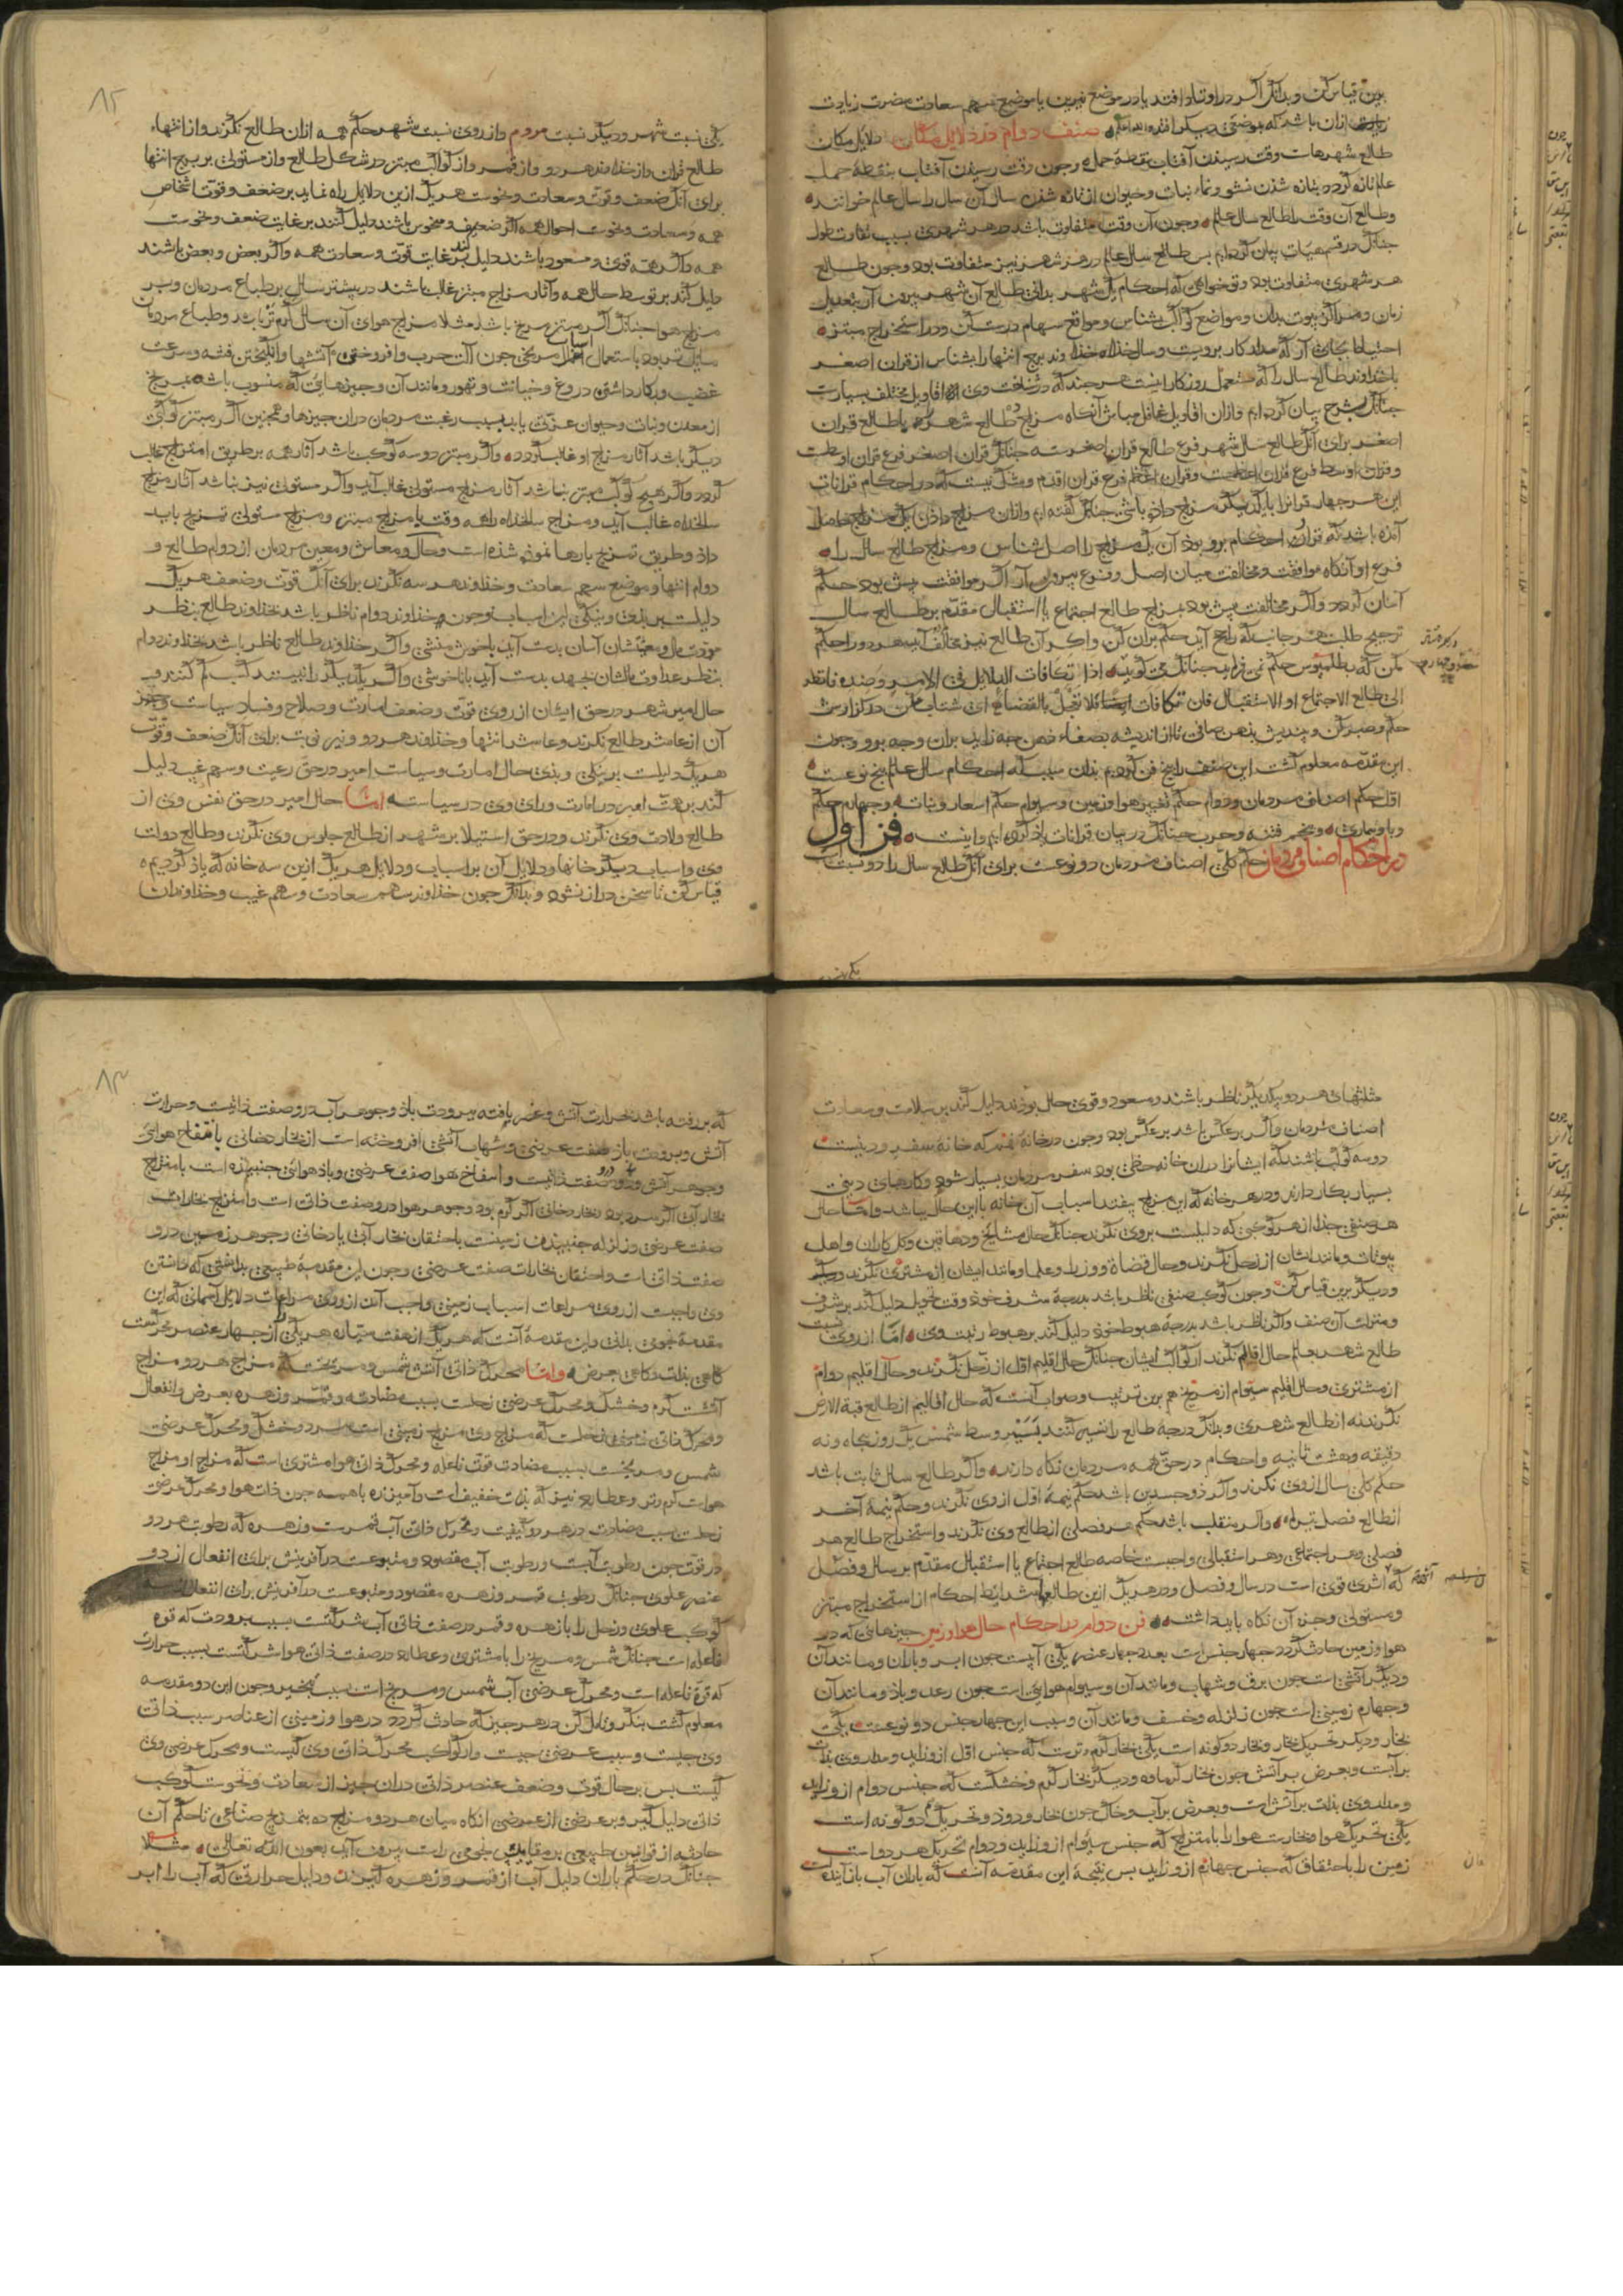 برین قیاس کن و بدانک اگر در اوتاد افتد یا در موضع نیرین یا موضع سهم سعادت مضرت زیادت
ازان باشد که بموضعی دیگر افتد والله اعلم صنف دوام در دلایل مکان دلایل مکان
طالع شهرهاست وقت رسیدن آفتاب بنقطهٔ حمل وجون وقت رسیدن آفتاب بنقطهٔ حمل
عالم تازه کردد بتازه شدن نشو و نماء نبات وحیوان از تازه شدن سال آن سال را سال عالم خوانند
وطالع آن وقت را طالع سال عالم وجون آن وقت متفاوت باشد در هر شهری بسبب تفاوت طول
جنانک در قسم هیات بیان کرده‌ایم بس طالع سال عالم در هر شهر نیز متفاوت بود وجون طالع
هر شهری متفاوت بود وتو خواهی که احکام یک شهر بدانی طالع آن شهر بیرون آر بتعدیل
زمان ومراکز بیوت بدان ومواضع کواکب بشناس ومواقع سهام درست کن ودر استخراج مبتز
احتیاط بجای آر که مدار کار برویست وسالخداه وخداوند برج انتها را بشناس از قران اصغر
یا خداوند طالع سال را که مستعمل روزکار اینست هرجند که در شناخت وی اقاویل مختلف بسیارست
جنانک بشرح بیان کرده‌ایم وازان اقاویل غافل مباش آنکاه مزاج ده طالع شهر را با طالع قران
اصغر برای آنک طالع سال شهر فرع طالع قران اصغرست جنانک قران اصغر فرع قران اوسطست
وقران اوسط فرع قران اعظمست وقران اعظم فرع قران اقدم وشک نیست که در احکام قرانات
این هر جهار قرانرا با یکدیکر مزاج داده باشی جنانک کفته‌ایم وازان مزاج دادن یک مزاج حاصل
آمده باشد که قران را احکام برو بود آن یک مزاج را اصل شناس ومزاج طالع سال را
فرع او آنکاه موافقت ومخالفت میان اصل وفرع بیرون آر اکر موافقت بیش بود حکم
آسان کردد واکر مخالفت بیش بود مزاج طالع اجتماع یا استقبال مقدم بر طالع سال
ترجیح طلب هر جانب که راجح آید حکم بران کن واکر آن طالع نیز مخالف آید هر دو را حکم
مکن که بطلمیوس حکم نمی‌فرماید جنانک می‌کوید اذا تکافات الدلایل فی الامر وضده فانظر
الی طالع الاجتماع او الاستقبال فان تکافات ایضا فلا تعجل بالقضاء ای شتاب مکن در کزارش
حکم وصبر کن وبیندیش بذهن صافی تا از اندیشه بصفاء ذهن جه زاید بران وجه برو وجون
این مقدمه معلوم کشت این صنف را بنج فن کردیم بدان سبب که احکام سال عالم بنج نوعست
اول حکم اصناف مردمان ودوام حکم تغییر هوا وزمین وسیوام حکم اسعار ونبات وجهارم حکم
وبا وبیماری وبنجم فتنه وحرب جنانک در بیان قرانات یاد کرده‌ایم واینست فن اول
در احکام اصناف مردمان حکم کلی اصناف مردمان دو نوعست برای آنک طالع سال را دو نسبت است
۸۲
یکی نسبت شهر ودیکر نسبت مردم واز روی نسبت شهر حکم همه ازان طالع نکرند واز انتهاء
طالع قران واز خداوند هر دو واز قمر واز کواکب مبتز در شکل طالع واز مستولی بر برج انتها
برای آنک ضعف وقوت وسعادت ونحوست هر یک ازین دلایل راه نماید بر ضعف وقوت اشخاص
همه وسعادت ونحوست احوال همه اکر ضعیف ومنحوس باشند دلیل کنند بر غایت ضعف ونحوست
همه واکر همه قوی ومسعود باشند دلیل کند بر غایت قوت وسعادت همه واکر بعض وبعض باشند
دلیل کند بر توسط حال همه وآثار مزاج مبتز غالب باشند در بیشتر سال بر طباع مردمان وبر
مزاج هوا جنانک اکر مبتز مریخ باشد مثلا مزاج هوای آن سال کرم‌تر باشد وطباع مردمان
مایل شود باستعمال اسباب مریخی جون آلت حرب وافروختن آتشها وانکیختن فتنه وسرعت
غضب وبکار داشتن دروغ وخیانت وتهور ومانند آن وجیزهایی که منسوب باشد بمریخ
از معدن ونبات وحیوان عزتی یابد بسبب رغبت مردمان دران جیزها وهمجنین اکر مبتز کوکبی
دیکر باشد آثار مزاج او غالب کردد واکر مبتز دو سه کوکب باشد آثار همه بر طریق امتزاج غالب
کردد واکر هیج کوکب مبتز نباشد آثار مزاج مستولی غالب آید واکر مستولی نیز نباشد آثار مزاج
سالخداه غالب آید ومزاج سالخداه را همه وقت با مزاج مبتز ومزاج مستولی تمزیج باید
داد وطریق تمزیج بارها نموده شده است وحال ومعاش ومعین مردمان از دوام طالع و
دوام انتها وموضع سهم سعادت وخداوند هر سه نکرند برای آنک قوت وضعف هر یک
دلیلست بر بدی ونیکی این اسباب وجون خداوند دوام ناظر باشد بخداوند طالع بنظر
مودت مال ومعاشان آسان بدست آید با خوش منشی واکر خداوند طالع ناظر باشد بخداوند دوام
بنظر عداوت مالشان بجهد بدست آید با ناخوشی واکر یکدیکر را نبینند کسب کم کنند و
حال امیر شهر در حق ایشان از روی قوت وضعف امارت وصلاح وفساد سیاست وجز
آن از عاشر طالع نکرند وعاشر انتها وخداوند هر دو ونیر نوبت برای آنک ضعف وقوت
هر یک دلیلست بر نیکی وبدی حال امارت وسیاست امیر در حق رعیت وسهم غیب دلیل
کند بر همت امیر در امارت ورای وی در سیاست اما حال امیر در حق نفس وی از
طالع ولادت وی نکرند ودر حق استیلا بر شهر از طالع جلوس وی نکرند وطالع دولت
وی واسباب دیکر خانها ودلایل آن بر اسباب ودلایل هر یک ازین سه خانه که یاد کردیم
قیاس کن تا سخن دراز نشود وبدانک جون خداوند سهم سعادت وسهم غیب وخداوندان
مثلثهای هر دو بیکدیکر ناظر باشند ومسعود وقوی حال بوند دلیل کنند بر سلامت وسعادت
اصناف مردمان واکر بر عکس باشد بر عکس بود وجون در خانهٔ نهم که خانهٔ سفر ودینست
دو سه کوکب باشند که ایشانرا دران خانه حظی بود سفر مردمان بسیار شود وکارهای دینی
بسیار بکار دارند ودر هر خانه که این مزاج بیفتد اسباب آن خانه با این حال باشد واما حال
هر صنفی جدا از هر کوکبی که دلیلست بروی نکرند جنانک حال مشایخ ودهاقین وکل‌کاران واهل
بیوتات ومانند ایشان از زحل نکرند وحال قضاة ووزرا وعلما ومانند ایشان از مشتری نکرند
ودیکر برین قیاس کن وجون کوکب صنفی ناظر باشد بدرجهٔ شرف خود وقت تحویل دلیل کند بر شرف
ومنزلت آن صنف واکر ناظر باشد بدرجهٔ هبوط خود دلیل کند بر هبوط رتبت وی اما از روی نسبت
طالع شهر بعالم حال اقالیم نکرند از کواکب ایشان جنانک حال اقلیم اول از زحل نکرند وحال اقلیم دوام
از مشتری وحال اقلیم سیوام از مریخ هم برین ترتیب وصواب آنست که حال اقالیم از طالع قبة الارض
نکرند نه از طالع شهری وبدانک درجهٔ طالع را تسییر کنند بسیر وسط شمس یک روز بجاه ونه
دقیقه وهشت ثانیه واحکام در حق همه مردمان نکاه دارند واکر طالع سال ثابت باشد
حکم کلی سال ازوی نکرند واکر ذو جسدین باشد حکم نیمهٔ اول ازوی نکرند وحکم نیمهٔ آخر
از طالع فصل تیرماه واکر منقلب باشد حکم هر فصلی از طالع وی نکرند واستخراج طالع هر
فصلی وهر اجتماعی وهر استقبالی واجبست خاصه طالع اجتماع یا استقبال مقدم بر سال وفصل
که اثری قوی است در سال وفصل ودر هر یک ازین طالعها شرایط احکام از استخراج مبتز
ومستولی وجز آن نکاه باید داشت فن دوام در احکام حال هوا وزمین جیزهایی که در
هوا وزمین حادث کردد جهار جنس است بعدد جهار عنصر یکی آبیست جون ابر وباران ومانند آن
ودیکر آتشی است جون برق وشهاب ومانند آن وسیوام هوایی است جون رعد وباد ومانند آن
وجهارم زمینی است جون زلزله وخسف ومانند آن وسبب این جهار جنس دو نوعست یکی
بخار ودیکر تحریک بخار وبخار دو کونه است یکی بخار کرم وترست که جنس اول ازو زاید ومدار وی بذات
بر آبست وبعرض بر آتش جون بخار کرماوه ودیکر بخار کرم وخشکست که جنس دوام ازو زاید
ومدار وی بذات بر آتش است وبعرض بر آب وخاک جون بخار ودود وتحریک دو کونه است
یکی تحریک هوا وبخارست هوا را بامتزاج که جنس سیوام ازو زاید ودوام تحریک هر دو است
زمین را باحتقان که جنس جهارم ازو زاید بس نتیجهٔ این مقدمه آنست که باران آب باز آینده است
۸۳
که بر رفته باشد بحرارت آتش وعصر یافته ببرودت باد وجوهر آب درو صفت ذاتیست وحرارت
آتش وبرودت باد صفت عرضی وشهاب آتشی افروخته است از بخار دخانی بانتفاخ هوایی
وجوهر آتش درو صفت ذاتیست وانتفاخ هوا صفت عرضی وباد هوائی جنبنده است بامتزاج
بخار آبی اکر سرد بود وبخار دخانی اکر کرم بود وجوهر هوا درو صفت ذاتی است وامتزاج بخارات
صفت عرضی وزلزله جنبیدن زمینست باحتقان بخار آبی یا دخانی وجوهر زمین درو
صفت ذاتی است واحتقان بخارات صفت عرضی وجون این مقدمهٔ طبیعی بدانستی که دانستن
وی واجبست از روی مراعات اسباب زمینی واجب آنست از روی مراعات دلایل آسمانی که این
مقدمهٔ نجومی بدانی واین مقدمهٔ آنست که هر یک از هفت سیاره هر یکی از جهار عنصر محرکست
کاهی بذات وکاهی بعرض واما محرک ذاتی آتش شمس ومریخست که مزاج هر دو مزاج
آتشست کرم وخشک ومحرک عرضی زحلست بسبب مضادت وقمر وزهره بعرض وانفعال
ومحرک ذاتی زمین زحلست که مزاج وی مزاج زمینی است سرد وخشک ومحرک عرضی
شمس ومریخست بسبب مضادت قوت فاعله ومحرک ذاتی هوا مشتری است که مزاج او مزاج
هواست کرم وتر وعطارد نیز که بذات خفیف است وآمیزنده با همه جون ذات هوا ومحرک عرضی
زحلست بسبب مضادت در هر دو کیفیت ومحرک ذاتی آب قمرست وزهره که رطوبت هر دو
در قوت جون رطوبت آبست ورطوبت آب مقصود ومتبوعست در آفرینش برای انفعال از دو
عنصر علوی جنانک رطوبت قمر وزهره مقصود ومتبوعست در آفرینش برای انفعال از
کوکب علوی وزحل را با زهره وقمر در صفت ذاتی آب شرکتست بسبب برودت که قوة
فاعله است جنانک شمس ومریخ را با مشتری وعطارد در صفت ذاتی هوا شرکتست بسبب حرارت
که قوة فاعله است ومحرک عرضی آب شمس ومریخ است بسبب تبخیر وجون این دو مقدمه
معلوم کشت بنکر وتامل کن در هر جیز که حادث کردد در هوا وزمین از عناصر سبب ذاتی
وی جیست وسبب عرضی جیست واز کواکب محرک ذاتی وی کیست ومحرک عرضی وی
کیست بس بر حال قوت وضعف عنصر ذاتی دران جیز از سعادت ونحوست کوکب
ذاتی دلیل کیر وبر عرضی از عرضی آنکاه میان هر دو مزاج ده بتمزیج صناعی تا حکم آن
حادثه از قوانین طبیعی بر مقاییس نجومی راست بیرون آید بعون الله تعالی مثلا
جنانک در حکم باران دلیل آب از قمر وزهره کیرند ودلیل حرارتی که آب را ابر